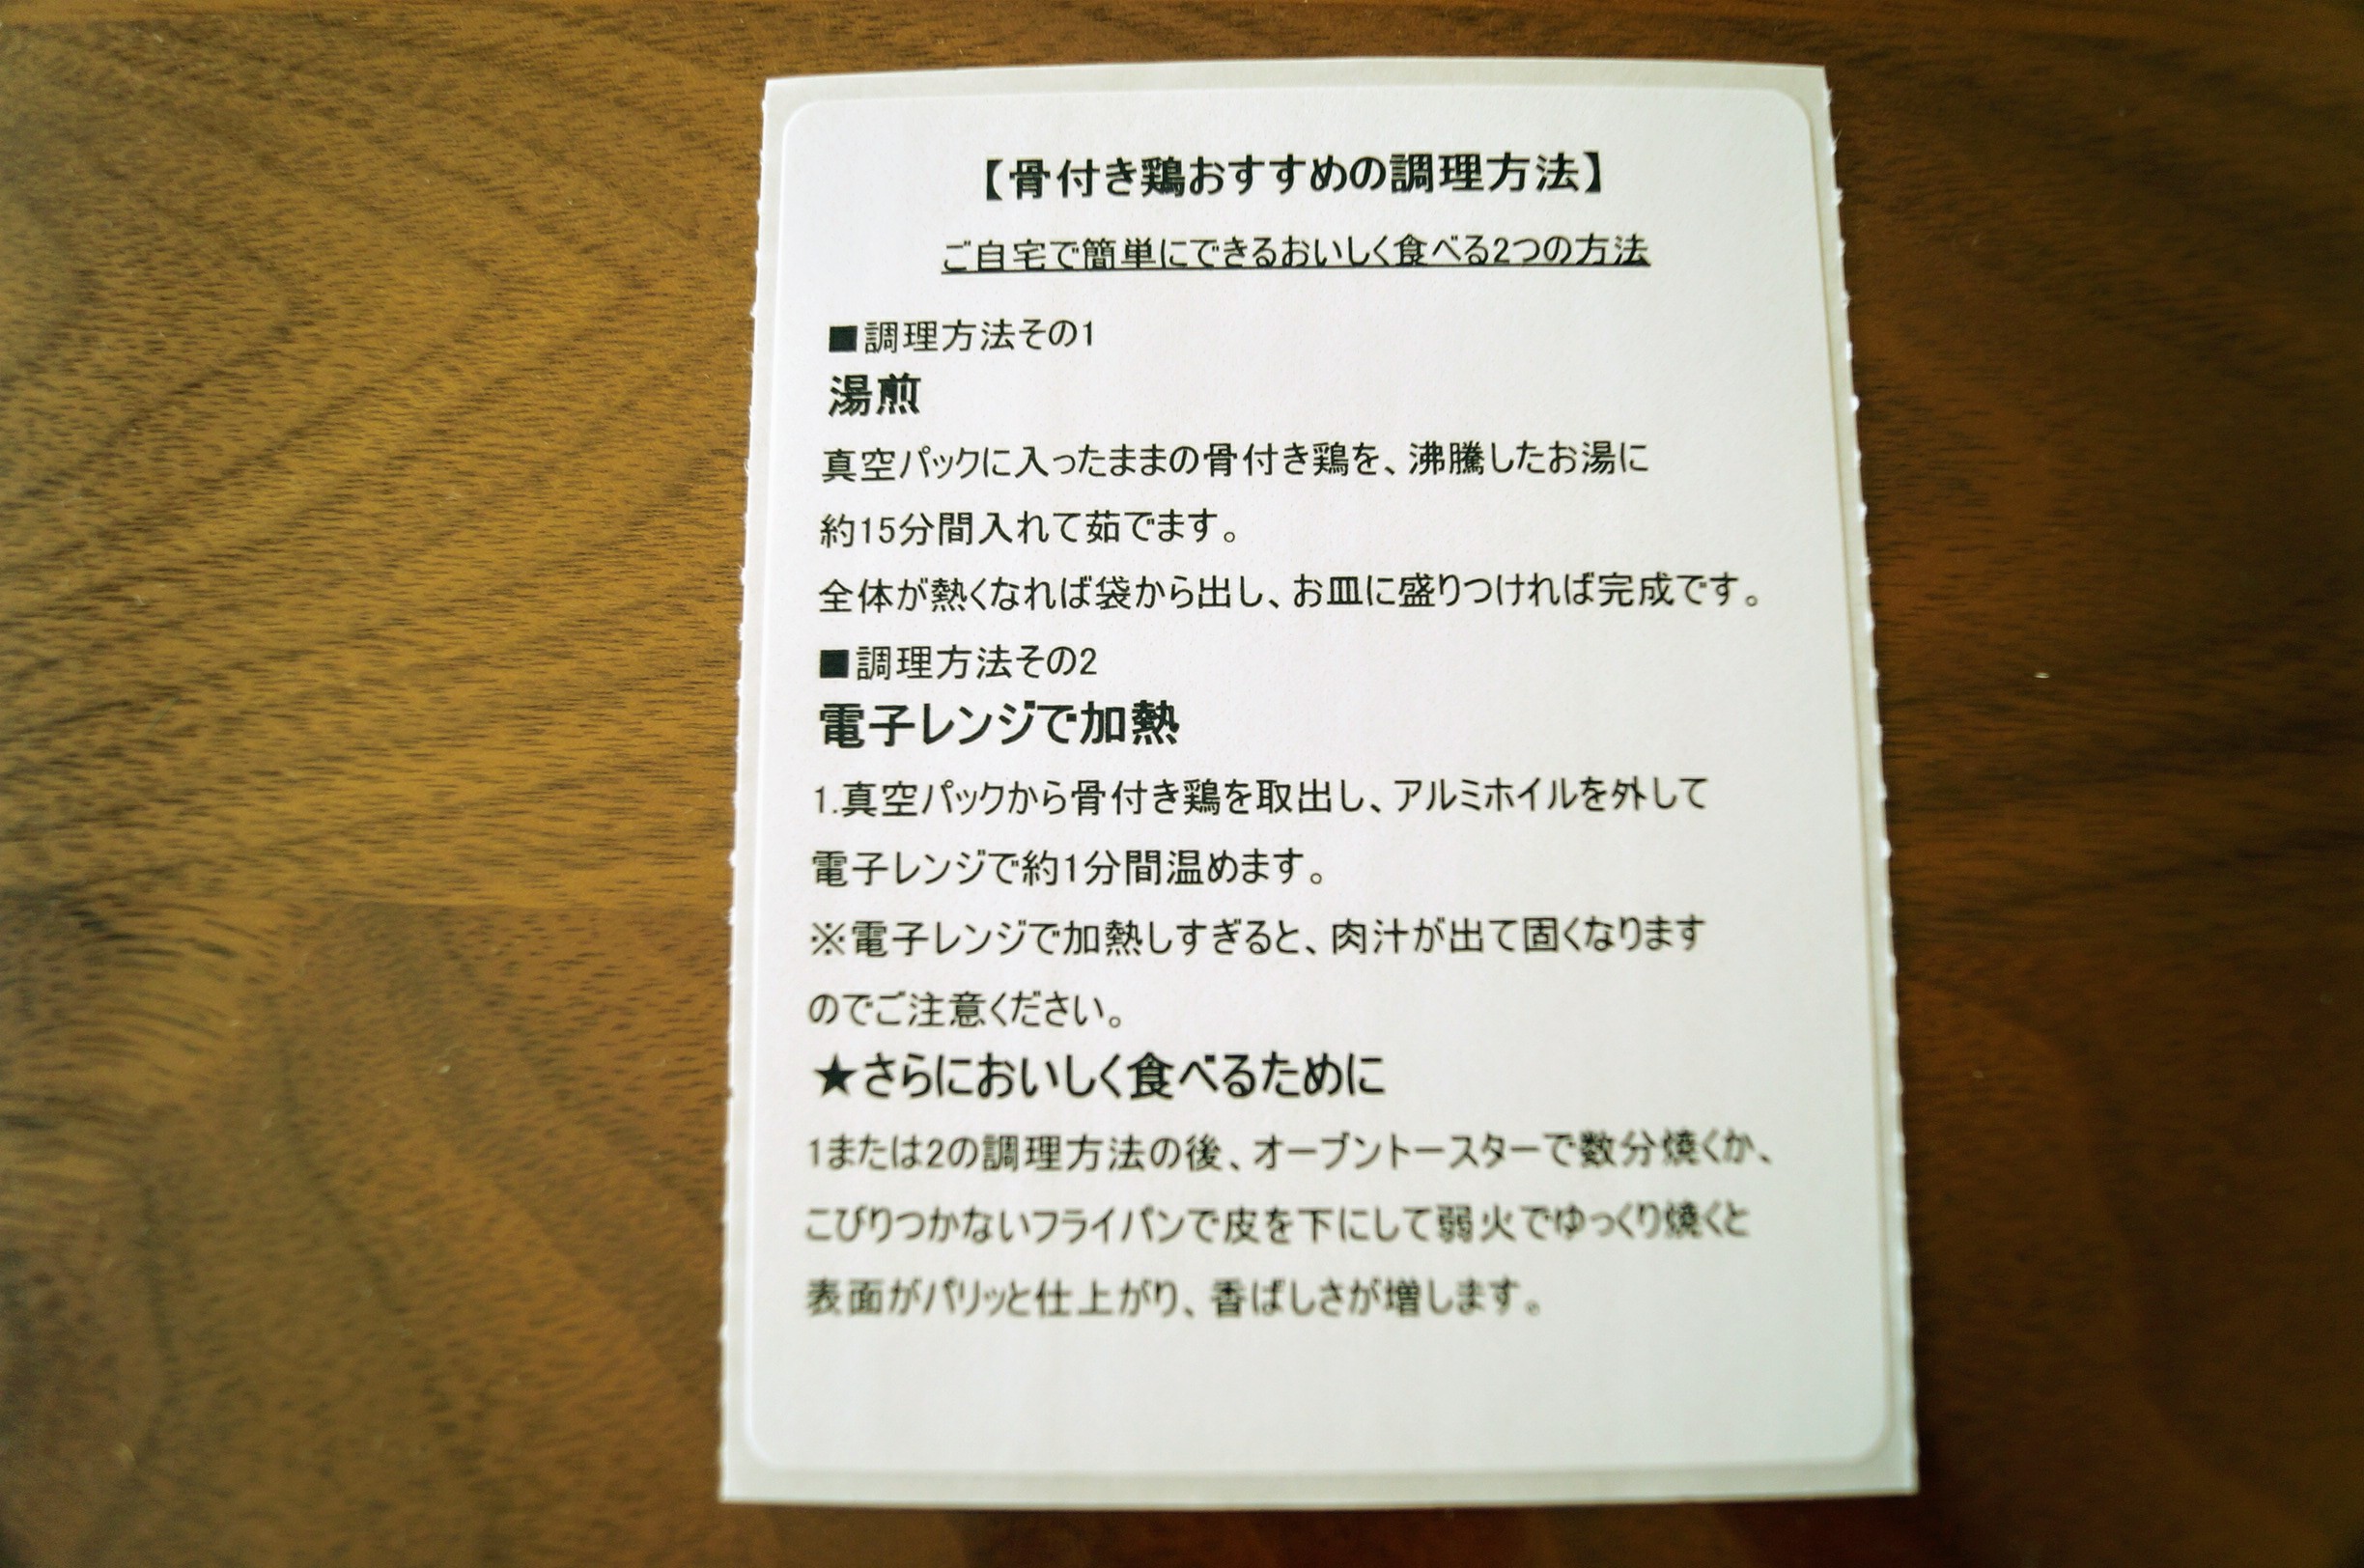 【骨付き鶏おすすめの調理方法】
ご自宅で簡単にできるおいしく食べる2つの方法
■調理方法その1
湯煎
真空パックに入ったままの骨付き鶏を、沸騰したお湯に
約15分間入れて茹でます。
全体が熱くなれば袋から出し、お皿に盛りつければ完成です。
■調理方法その2
電子レンジで加熱
1.真空パックから骨付き鶏を取出し、アルミホイルを外して
電子レンジで約1分間温めます。
※電子レンジで加熱しすぎると、肉汁が出て固くなります
のでご注意ください。
★さらにおいしく食べるために
1または2の調理方法の後、オーブントースターで数分焼くか、
こびりつかないフライパンで皮を下にして弱火でゆっくり焼くと
表面がパリッと仕上がり、香ばしさが増します。